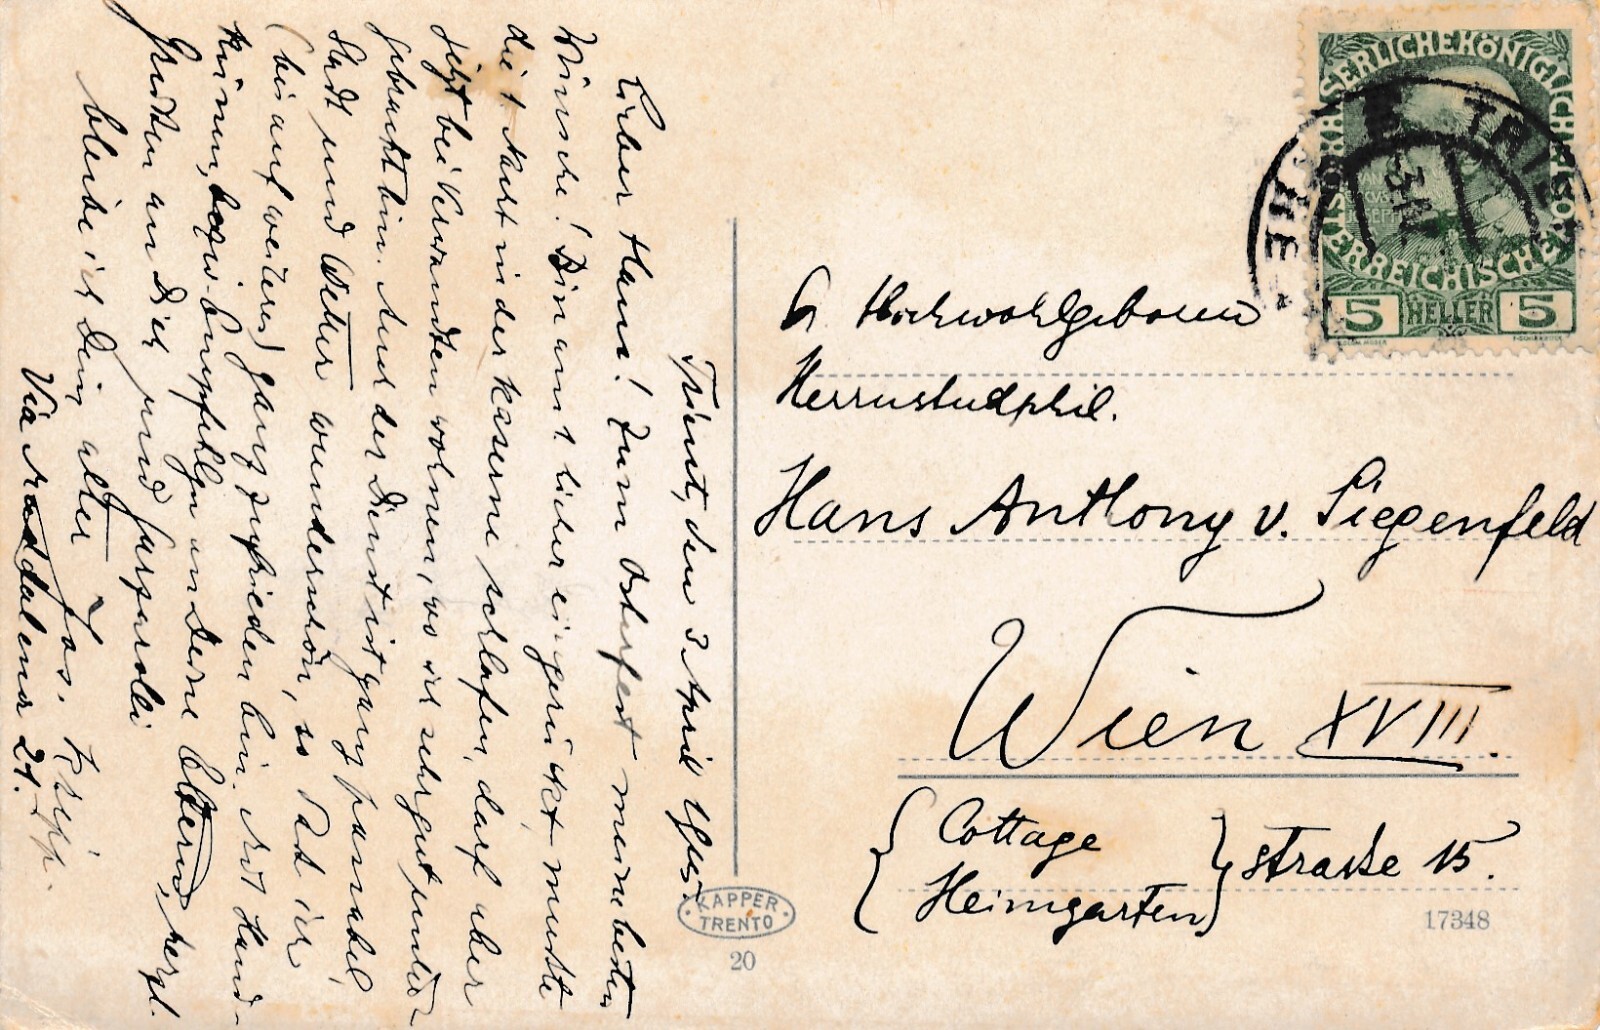 Trient, den 3. April 1915.
Lieber Hans! Zum Osterfest meine besten
Wünsche! Bin amtlicher eingerückt, musste
die 1. Nacht in der Kaserne schlafen, darf aber
jetzt bei Verwandten wohnen, wo ich sehr gut
gebracht bin. Auch der Dienst ist ganz passabel,
Stadt und Wetter wunderschön, so dass ich
(bis auf weiteres) ganz zufrieden bin. Mit Hand-
küssen, bezw. Empfehlgn an Deine Eltern, herzl.
Grüßen an Dich und
bleibe ich Dein alter Jos.
Via Maddalena 21.
Hochwohlgeboren
Herrn stud phil.
Hans Anthony v. Siegenfeld
Wien XVIII.
{ Cottage
Heimgarten } strasse 15.
KAISERLICHEKÖNIGLICHE
ÖSTERREICHISCHE
5 HELLER 5
KAPPER
TRENTO
20
17348